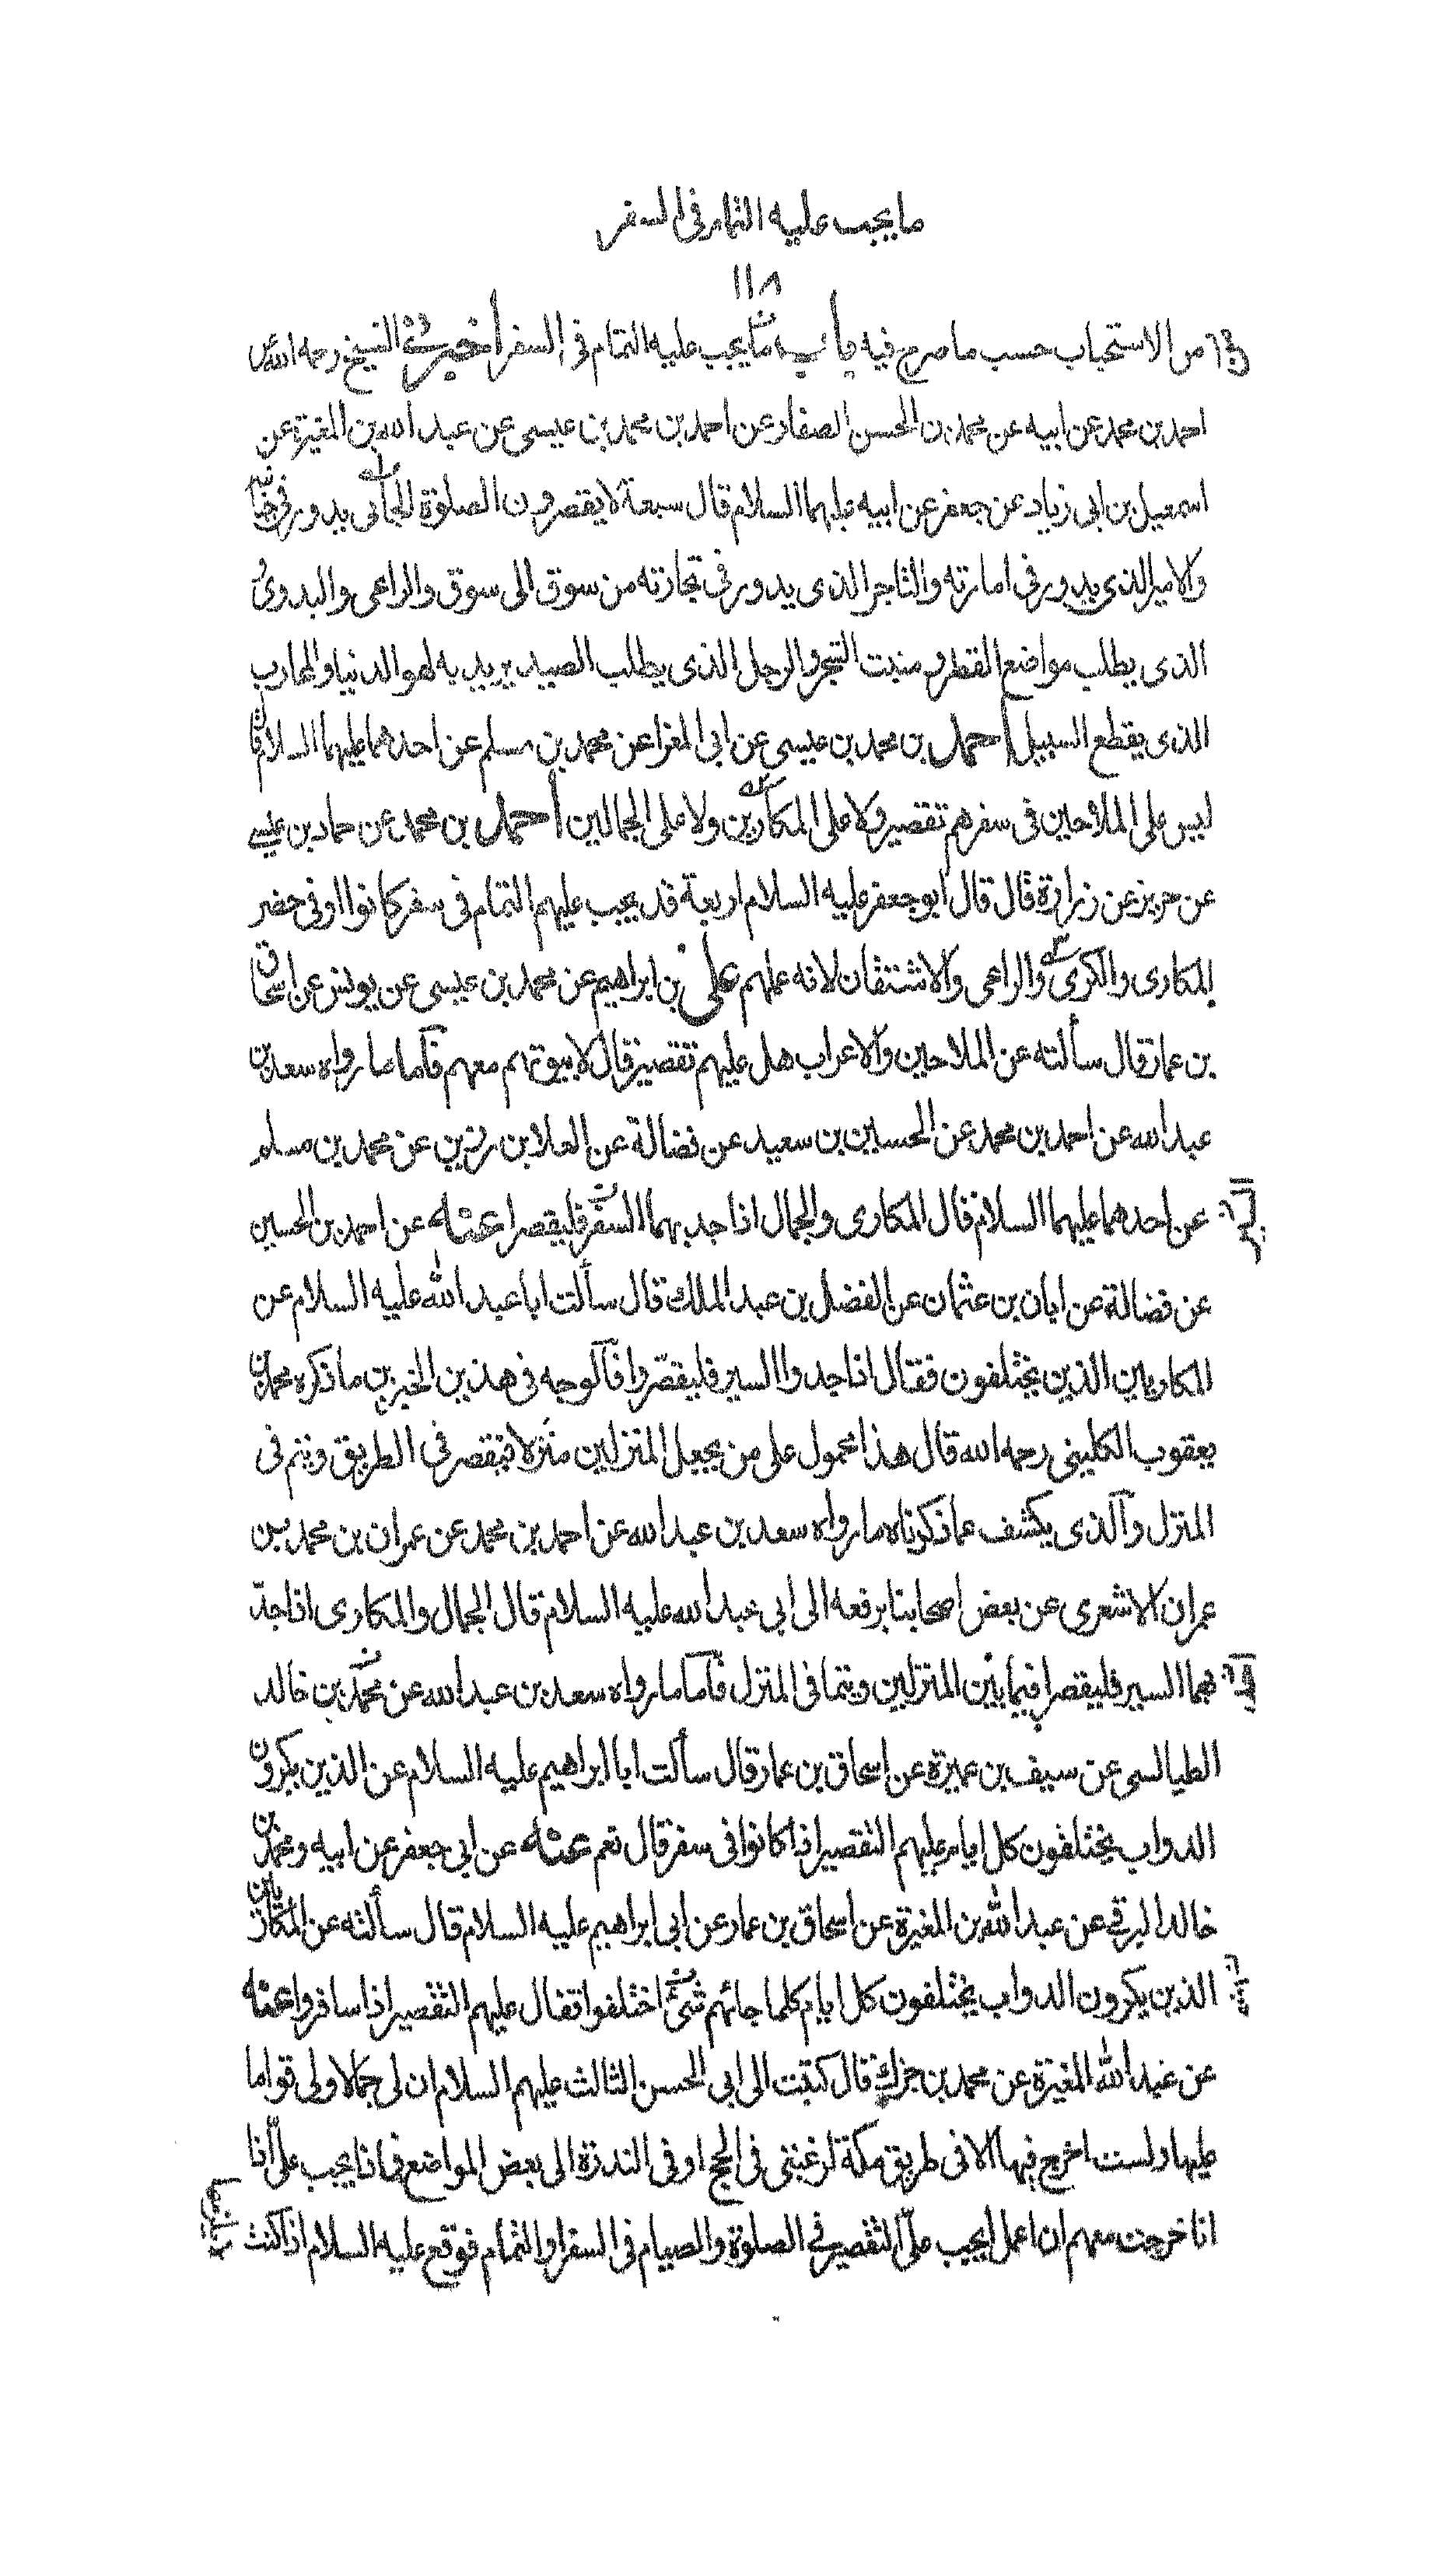 ما يجب عليه التمام في السفر
١١٨
من الاستحباب حسب ما صرح فيه باب ما يجب عليه التمام في السفر أخبرني الشيخ رحمه الله عن
احمد بن محمد عن ابيه عن محمد بن الحسن الصفار عن احمد بن محمد بن عيسى عن عبد الله بن المغيرة عن
اسمعيل بن ابي زياد عن جعفر عن ابيه عليهما السلام قال سبعة لا يقصرون الصلوة الجابي يدور في جبايته
والامير الذي يدور في امارته والتاجر الذي يدور في تجارته من سوق الى سوق والراعي والبدوي
الذي يطلب مواضع القطر و منبت الشجر والرجل الذي يطلب الصيد يريد به لهو الدنيا والمحارب
الذي يقطع السبيل أحمد بن محمد بن عيسى عن ابي المغرا عن محمد بن مسلم عن احدهما عليهما السلام قال
ليس على الملاحين في سفرهم تقصير ولا على المكارين ولا على الجمالين أحمد بن محمد عن حماد بن عيسى
عن حريز عن زرارة قال قال ابو جعفر عليه السلام اربعة قد يجب عليهم التمام في سفر كانوا او في حضر
المكاري والكري والراعي والاشتقان لانه عملهم علي بن ابراهيم عن محمد بن عيسى عن يونس عن اسحاق
بن عمار قال سألته عن الملاحين والاعراب هل عليهم تقصير قال لا بيوتهم معهم فأما ما رواه سعد بن
عبد الله عن احمد بن محمد عن الحسين بن سعيد عن فضالة عن العلا بن رزين عن محمد بن مسلم
عن احدهما عليهما السلام قال المكاري والجمال اذا جد بهما السفر فليقصرا عنه عن احمد بن الحسين
عن فضالة عن ابان بن عثمان عن الفضل بن عبد الملك قال سألت ابا عبد الله عليه السلام عن
المكاريين الذين يختلفون فقال اذا جدوا السير فليقصّروا فالوجه في هذين الخبرين ما ذكره محمد بن
يعقوب الكليني رحمه الله قال هذا محمول على من يجعل المنزلين منزلا فيقصر في الطريق ويتم في
المنزل والذي يكشف عما ذكرناه ما رواه سعد بن عبد الله عن احمد بن محمد عن عمران بن محمد بن
عمران الاشعري عن بعض اصحابنا يرفعه الى ابي عبد الله عليه السلام قال الجمال والمكاري اذا جدّ
بهما السير فليقصرا فيما بين المنزلين ويتما في المنزل فأما ما رواه سعد بن عبد الله عن محمد بن خالد
الطيالسي عن سيف بن عميرة عن اسحاق بن عمار قال سألت ابا ابراهيم عليه السلام عن الذين يكرون
الدواب يختلفون كل ايام عليهم التقصير اذا كانوا في سفر قال نعم عنه عن ابي جعفر عن ابيه ومحمد بن
خالد البرقي عن عبد الله بن المغيرة عن اسحاق بن عمار عن ابي ابراهيم عليه السلام قال سألته عن المكارين
الذين يكرون الدواب يختلفون كل ايام كلما جائهم شئ اختلفوا فقال عليهم التقصير اذا سافروا عنه
عن عبد الله المغيرة عن محمد بن جزك قال كتبت الى ابي الحسن الثالث عليهم السلام ان لي جمالا ولي قواما
عليها ولست اخرج فيها الا في طريق مكة لرغبتي في الحج او في الندرة الى بعض المواضع فماذا يجب علىّ اذا
انا خرجت معهم ان اعمل ايجب علىّ التقصير في الصلوة والصيام في السفر او التمام فوقع عليه السلام اذا كنت